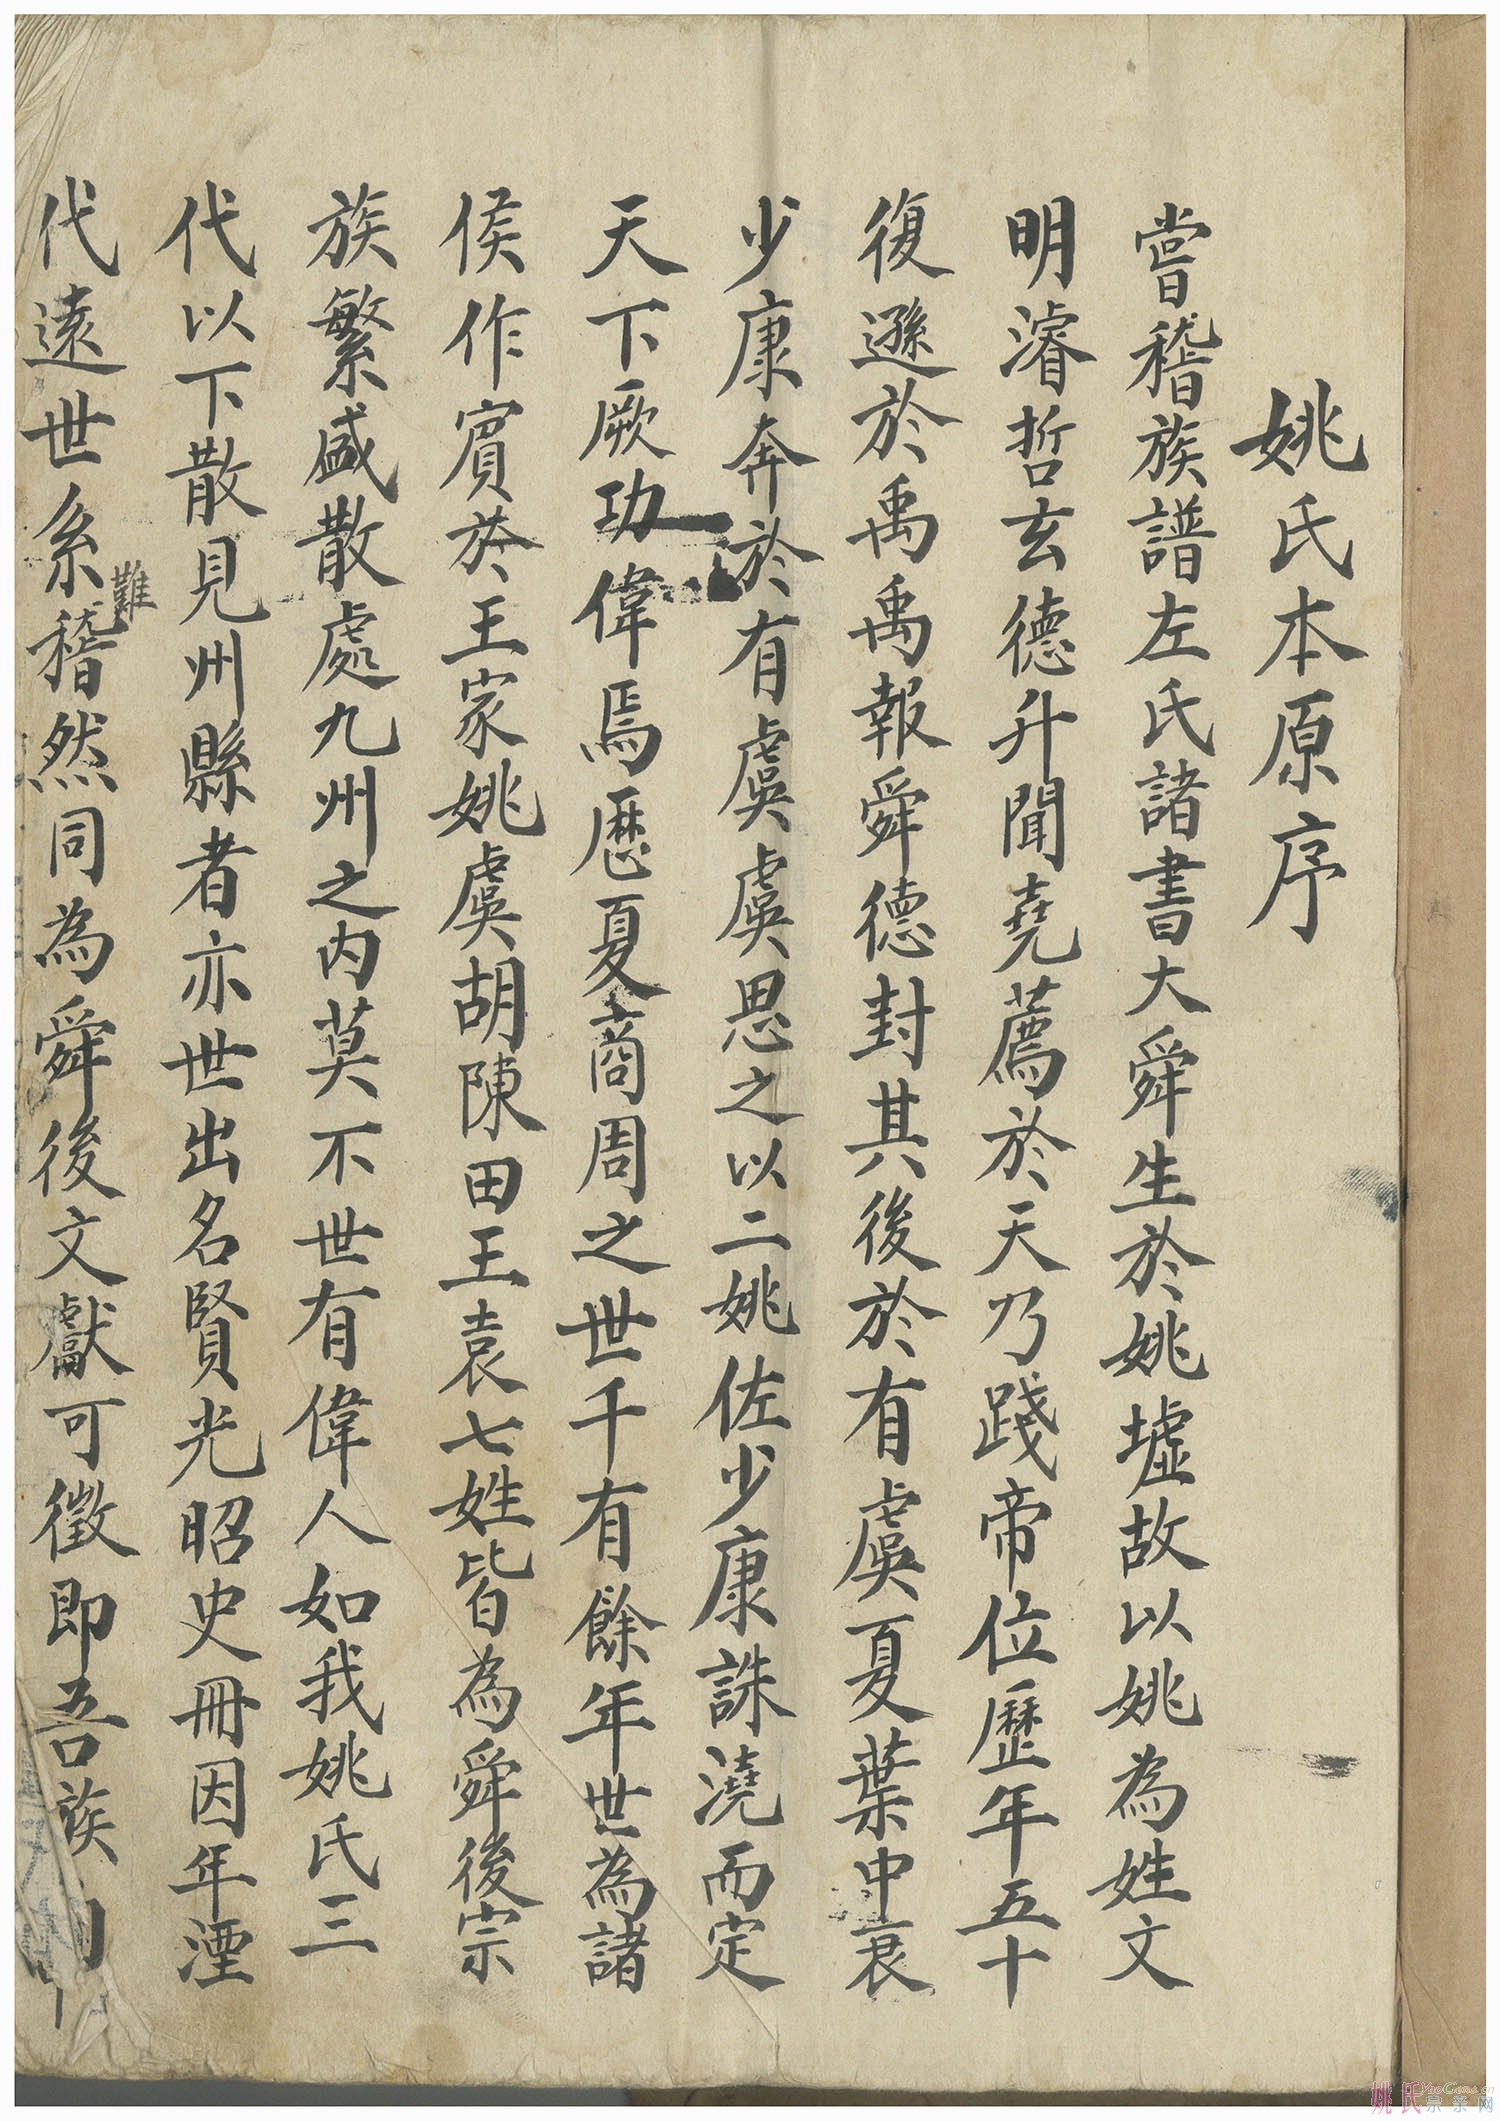 姚氏本原序
嘗稽族譜左氏諸書大舜生於姚墟故以姚為姓文
明濬哲玄德升聞堯薦於天乃踐帝位歷年五十
復遜於禹禹報舜德封其後於有虞夏葉中衰
少康奔於有虞虞思之以二姚佐少康誅澆而定
天下厥功偉焉歷夏商周之世千有餘年世為諸
侯作賓於王家姚虞胡陳田王袁七姓皆為舜後宗
族繁盛散處九州之内莫不世有偉人如我姚氏三
代以下散見州縣者亦世出名賢光昭史冊因年湮
代遠世系難稽然同為舜後文獻可徵即吾族
姚氏宗亲网
YaoGens.cn